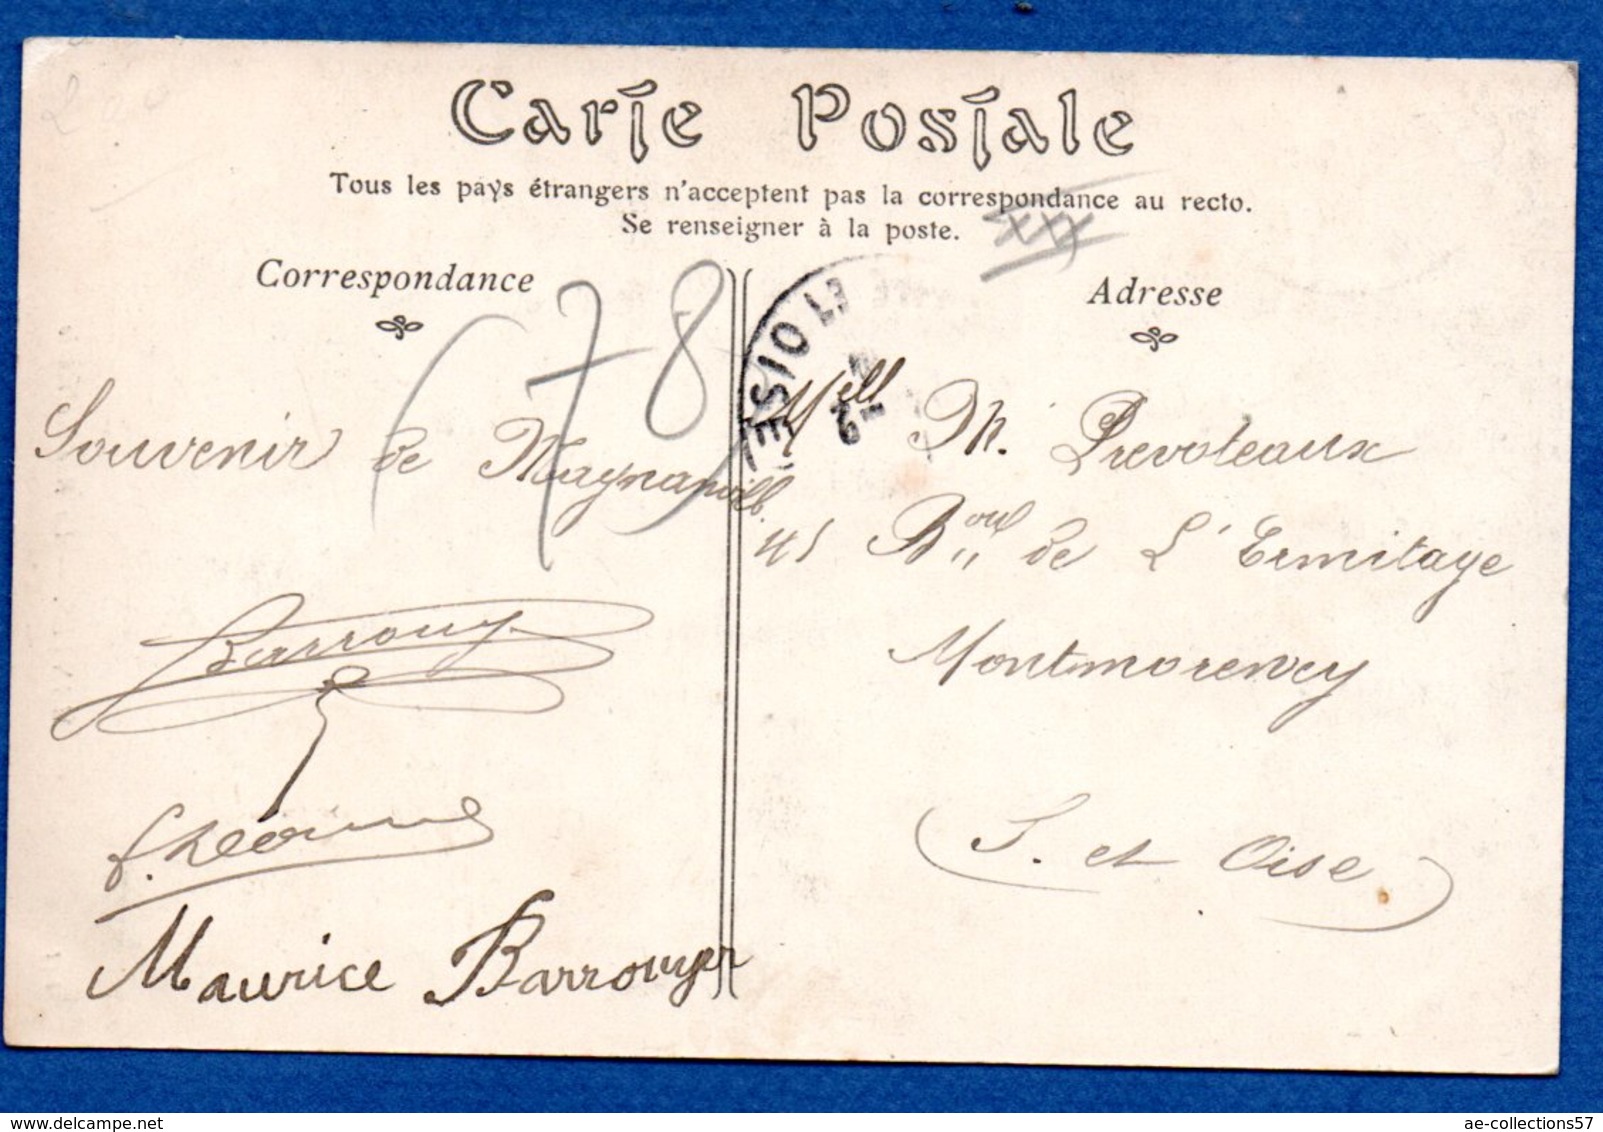 Carte Postale
Tous les pays étrangers n'acceptent pas la correspondance au recto.
Se renseigner à la poste.
XXX
Correspondance
(78)
Souvenir de Magnanville
Barrouy
Maurice Barrouyer
Adresse
ET OISE
Mell M. Prevoteaux
45 Boul de L'Ermitage
Montmorency
(S. et Oise)
delcampe.net
ae-collections57